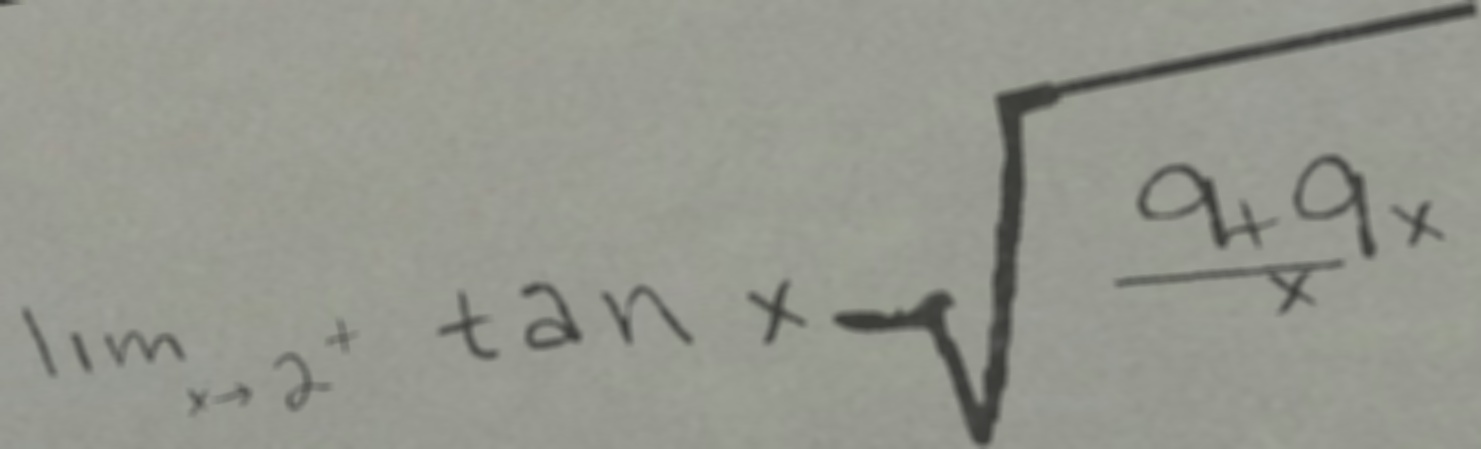 \lim_{x \to 2^+} \tan x - \sqrt{\frac{9+9x}{x}}